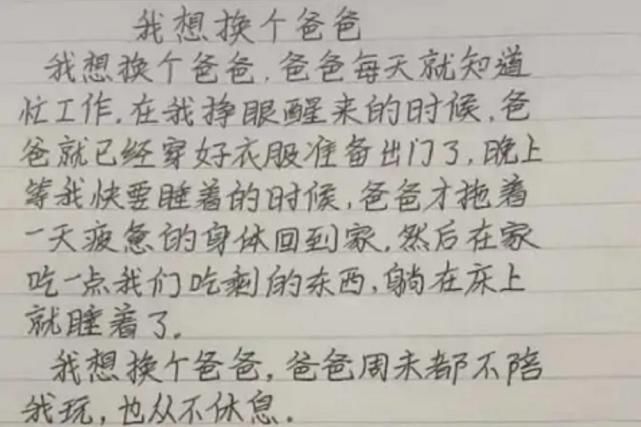 我想换个爸爸
我想换个爸爸，爸爸每天就知道
忙工作，在我挣眼醒来的时候，爸
爸就已经穿好衣服准备出门了，晚上
等我快要睡着的时候，爸爸才拖着
一天疲惫的身体回到家，然后在家
吃一点我们吃剩的东西，躺在床上
就睡着了。
我想换个爸爸，爸爸周末都不陪
我玩，也从不休息。